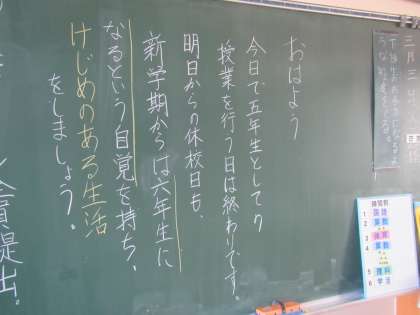 おはよう
今日で五年生としての
授業を行う日は終わりです。
明日からの休校日も、
新学期からは六年生に
なるという自覚を持ち、
けじめのある生活
をしましょう。
全員提出。
練習割
1 国語
2 算数
3 体育
4 算数
5 理科
6 学活